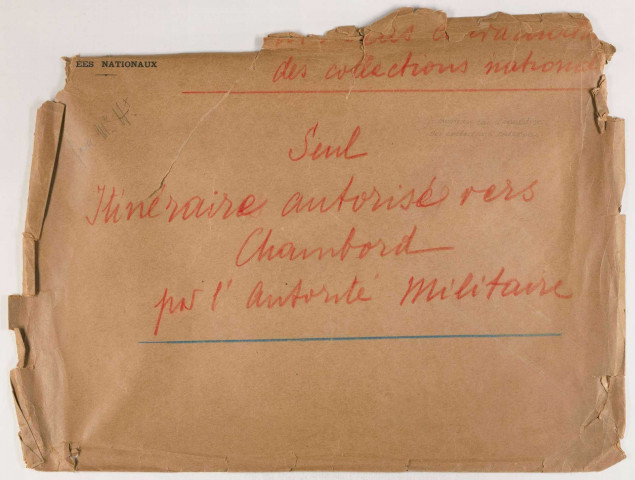 ÉES NATIONAUX
des collections national
Seul
Itinéraire autorisé vers
Chambord
par l'Autorité Militaire